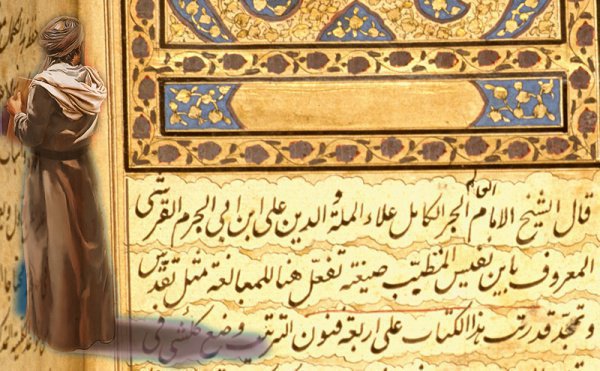 العالم
قال الشيخ الامام الحبر الكامل علاء الملة والدين على ابن ابى الحزم القرشى
المعروف بابن نفيس المتطبب صيغة تفعل هنا للمبالغة مثل تقدس
وتمجد قد رتبت هذا الكتاب على اربعة فنون الترتيب وضع كل شئ فى